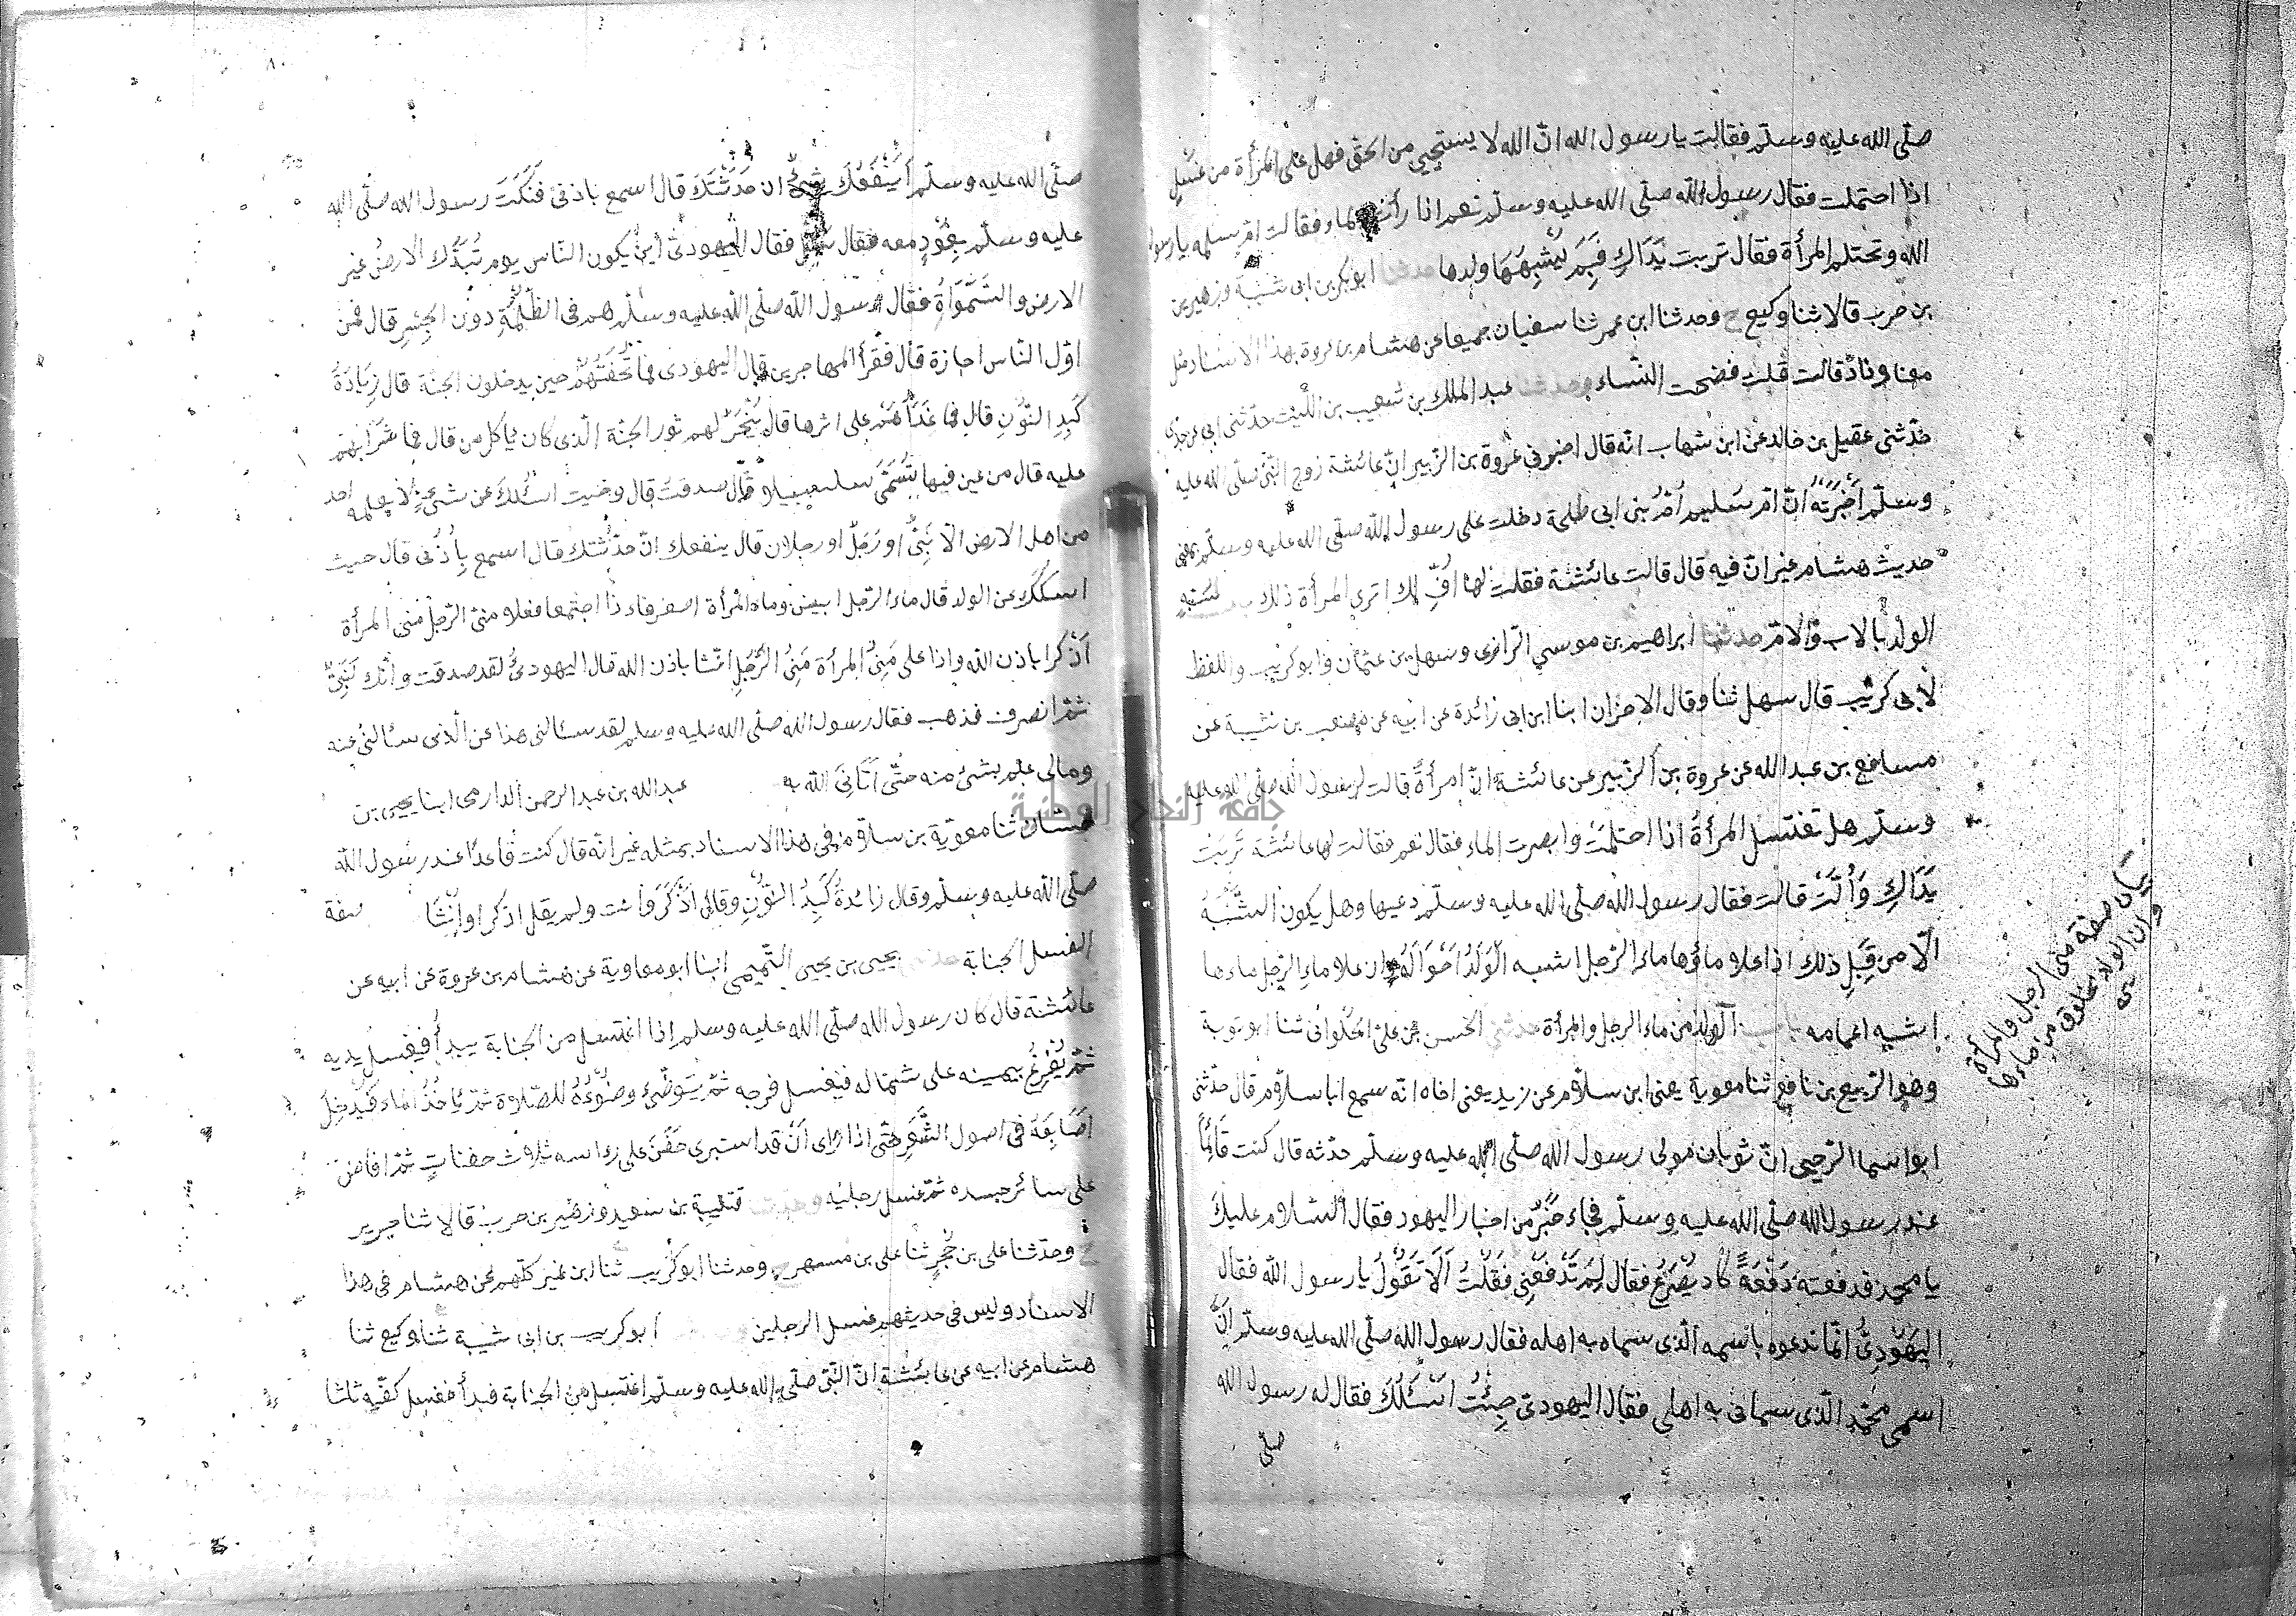 صلى الله عليه وسلم فقالت يا رسول الله ان الله لا يستحيي من الحق فهل على المرأة من غسل
اذا احتملت فقال رسول الله صلى الله عليه وسلم نعم اذا رأت الماء فقالت ام سلمة يا رسول
الله وتحتلم المرأة فقال تربت يَدَاكِ فَبِمَ يُشْبِهُهَا ولدها حدثنا ابو بكر بن ابى شيبة وزهير بن
بن حرب قالا ثنا وكيع ح وحدثنا ابن عمر ثنا سفيان جميعا عن هشام بن عروة بهذا الاسناد مثل
معناه وزاد قالت قلت فضحت النساء وحدثنا عبد الملك بن شعيب بن الليث حدثنى ابى عن جدى
حدثنى عقيل بن خالد عن ابن شهاب انه قال اخبرنى عروة بن الزبير ان عائشة زوج النبى صلى الله عليه
وسلم اَخْبَرَتْهُ ان ام سليم ام بنى ابى طلحة دخلت على رسول الله صلى الله عليه وسلم بمعنى
حديث هشام غير ان فيه قال قالت عائشة فقلت لها اُفٍّ لك اترى المرأة ذلك
الولد بالاب والام حدثنا ابراهيم بن موسى الرازى وسهل بن عثمان وابو كريب واللفظ
لأبى كريب قال سهل ثنا وقال الاخران ابنا ابن ابى زائدة عن ابيه عن مصعب بن شيبة عن
مسافع بن عبد الله عن عروة بن الزبير عن عائشة ان امرأةً قالت لرسول الله صلى الله عليه
وسلم هل تغتسل المرأة اذا احتلمت وابصرت الماء فقال نعم فقالت لها عائشة تَرِبَتْ
يَدَاكِ وَأُلَّتْ قالت فقال رسول الله صلى الله عليه وسلم دعيها وهل يكون الشَّبَهُ
الا من قِبَلِ ذلك اذا علا ماؤها ماء الرجل اشبه الْوَلَدُ اَخْوَالَهُ وان علا ماء الرجل ماءها
اشبه اعمامه باب الولد من ماء الرجل والمرأة حدثنى الحسن بن على الحلوانى ثنا ابو توبة
وهو الربيع بن نافع ثنا معوية يعنى ابن سلام عن زيد يعنى اخاه انه سمع ابا سلام قال حدثنى
ابو اسما الرحبى ان ثوبان مولى رسول الله صلى الله عليه وسلم حدثه قال كنت قَائِماً
عند رسول الله صلى الله عليه وسلم فجاء حَبْرٌ من احبار اليهود فقال السلام عليك
يا محمد فدفعته دَفْعَةً كاد يُصْرَعُ فقال لِمَ تَدْفَعُنِى فقلتُ اَلَا تَقُولُ يا رسول الله فقال
اليَهُودِىُّ انما ندعوه باسمه الذى سماه به اهله فقال رسول الله صلى الله عليه وسلم انَّ
اسمى محمد الذى سمانى به اهلى فقال اليهودى جِئْتُ اَسْئَلُكَ فقال له رسول الله
صلى
بيان صفة منى الرجل والمرأة
وان الولد مخلوق من ماءها
صلى الله عليه وسلم اَيَنْفَعُكَ شىءٌ ان حَدَّثْتُكَ قال اسمع باذنى فنكت رسول الله صلى الله
عليه وسلم بِعُوْدٍ معه فقال سَلْ فقال اليهودى اين يكون الناس يوم تُبَدَّل الارضُ غير
الارض والسَّمٰوَاةُ فقال رسول الله صلى الله عليه وسلم هم فى الظلمة دون الجسر قال فمن
اول الناس اجازة قال فقراء المهاجرين قال اليهودى فما تُحْفَتُهُمْ حين يدخلون الجنة قال زِيَادَةُ
كَبِدِ النُّوْنِ قال فما غَدَاؤُهُمْ على اثرها قال يُنْحَرُ لهم ثور الجنة الذى كان ياكل من قال فما شَرَابُهُمْ
عليه قال من عين فيها تُسَمّٰى سلسبيلا قال صدقت قال وجئت اسئلك عن شىء لا يعلمه احد
من اهل الارض الا نَبِىٌّ او رَجُلٌ او رجلان قال ينفعك انْ حدثتك قال اسمع بِاُذُنى قال جيت
اسئلك عن الولد قال ماء الرجل ابيض وماء المرأة اصفر فاءذا اجتمعا فعلا منىّ الرجل منى المرأة
اَذْكرا باذن الله واذا على مَنِىُّ المرأة مَنِىَّ الرَّجُلِ انثا باذن الله قال اليهودىّ لقد صدقت وانك لَنَبِىٌّ
ثم انصرف فذهب فقال رسول الله صلى الله عليه وسلم لقد سئالنى هذا عن الذى سئالنى عنه
ومالى علم بشىء منه حتى اَتَانِىَ الله به عبد الله بن عبد الرحمن الدارمى ابنا يحيى بن
حسان ثنا معوية بن سلام فى هذا الاسناد بمثله غير انه قال كنت قاعدًا عند رسول الله
صلى الله عليه وسلم وقال زائدةُ كَبِدِ النُّوْنِ وقال اَذْكَرَ وآنث ولم يقل اذكرا وانثا صفة
الغسل الجنابة حدثنا يحيى بن يحيى التميمى ابنا ابو معاوية عن هشام بن عروة عن ابيه عن
عائشة قال كان رسول الله صلى الله عليه وسلم اذا اغتسل من الجنابة يبدأ فيغسل يديه
ثم يُفْرِغُ بيمينه على شماله فيغسل فرجه ثم يَتَوَضَّئُ وضُوْءَهُ للصلاوة ثم يَاخُذُ الماء فَيُدْخِلُ
اَصَابِعَهُ فى اصول الشَّعْرِ حتى اذا راى اَنْ قد استبرى حَفَنَ على راسه ثلاث حفناتٍ ثم افاض
على سائر جسده ثم غسل رجليه وحدثنا قتيبة بن سعيد وزهير بن حرب قالا ثنا جرير
ح وحدثنا على بن حُجْرٍ ثنا على بن مسهر ح وحدثنا ابو كريب ثنا ابن نمير كلهم عن هشام فى هذا
الاسناد وليس فى حديثهم غسل الرجلين ابو كريب بن ابى شيبة ثنا وكيع ثنا
هشام عن ابيه عن عائشة ان النبى صلى الله عليه وسلم اغتسل من الجنابة فبدأ فغسل كفيه ثلثا
جامعة النجاح الوطنية